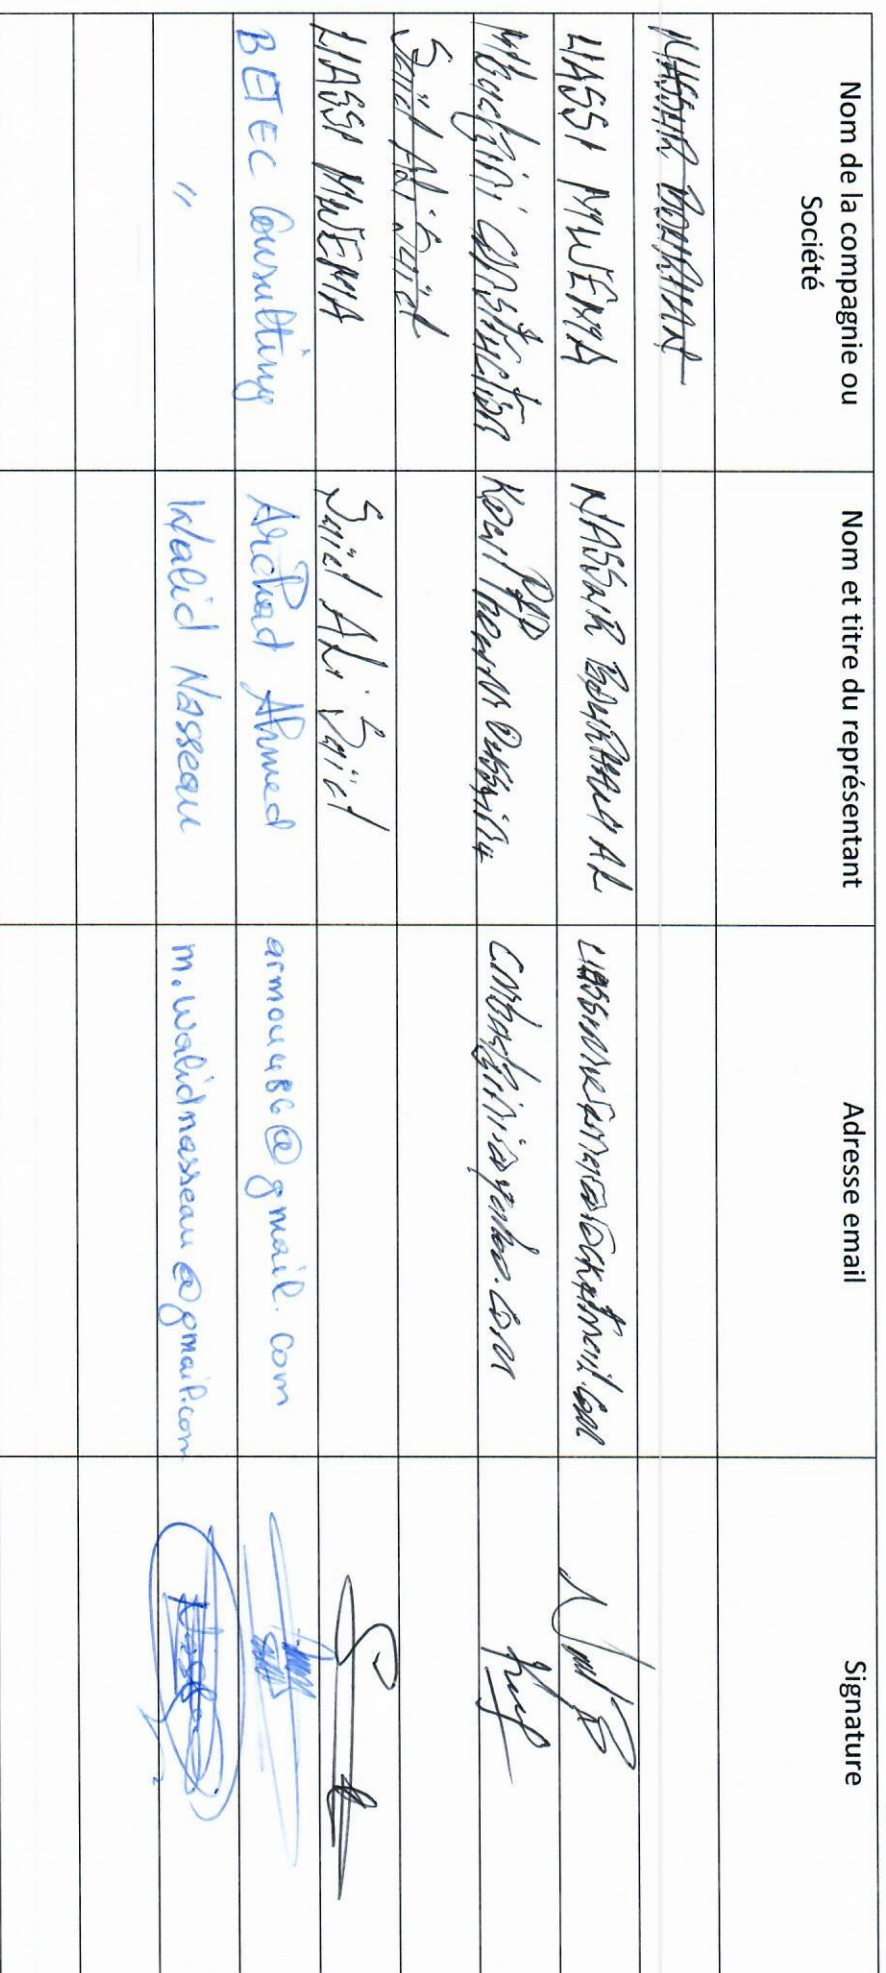 Nom de la compagnie ou Société
Nom et titre du représentant
Adresse email
Signature
NASSUR BOURHANI
LIASSI MWEMA
NASSUR BOURHANI AL
Mbaefini construction
Said Ali Said
LIASSI MWEMA
Said Ali Said
BETEC Consulting
Archad Ahmed
armou486@gmail.com
"
Walid Nasseau
m.walidnasseau@gmail.com